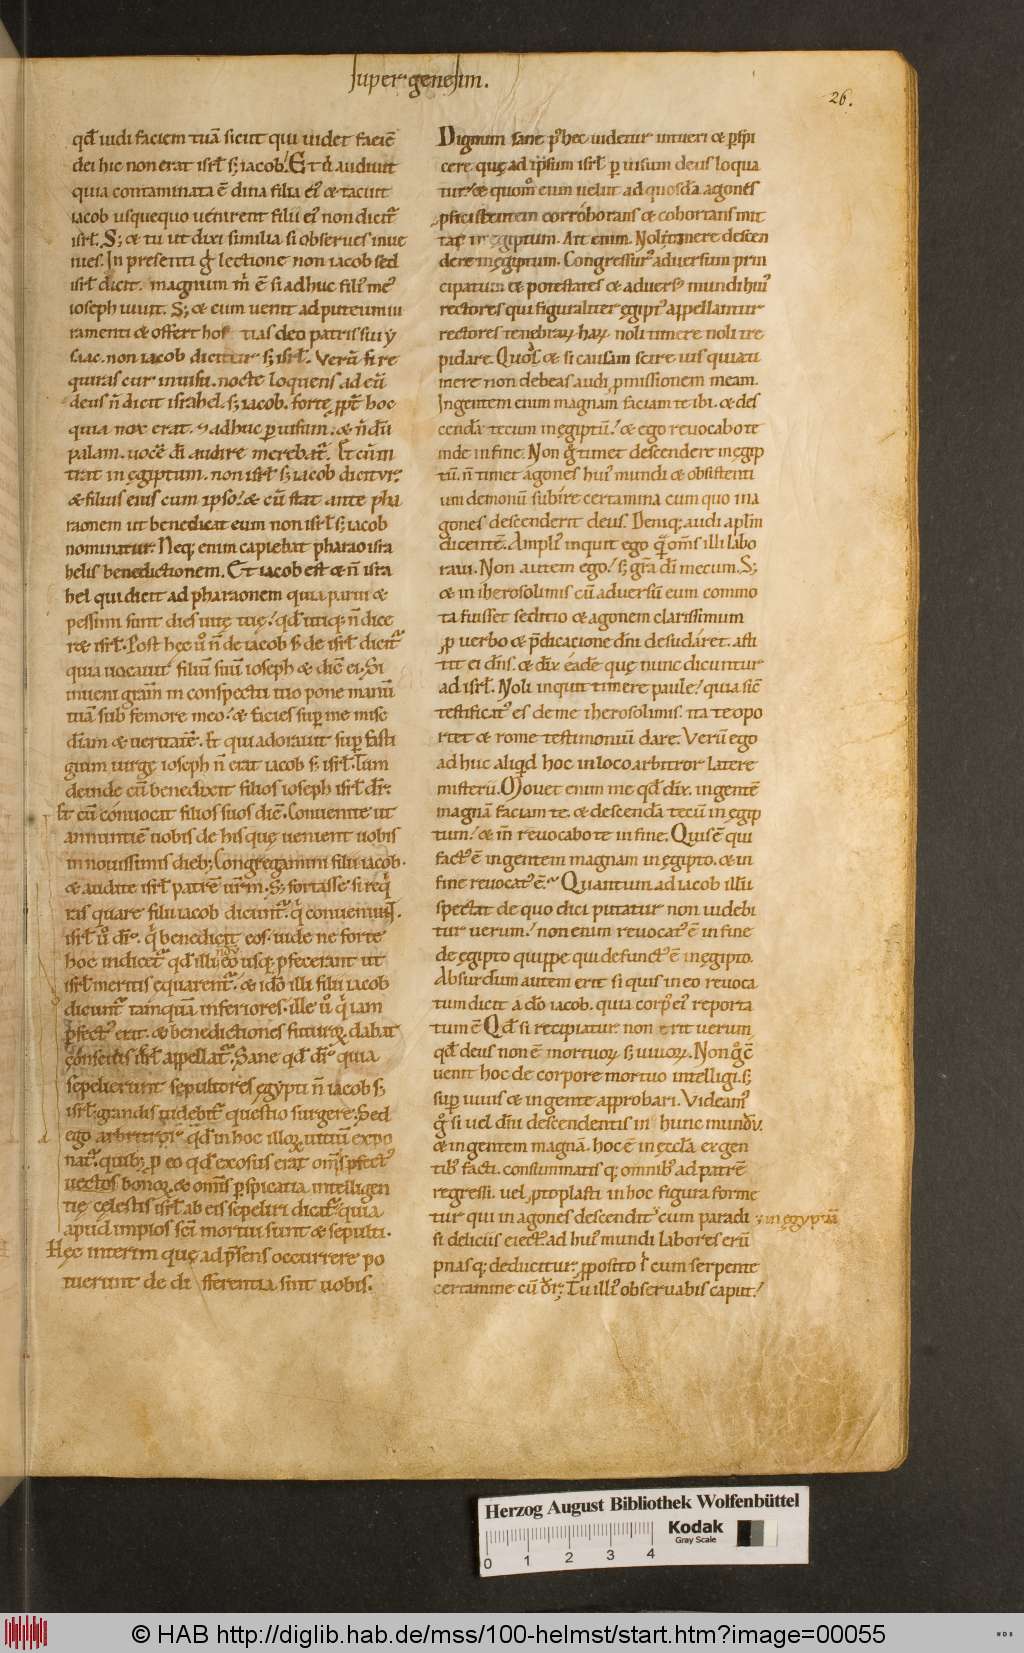 super genesim.
26.
qđ uidi faciem tuā sicut qui uidet faciē
dei hic non erat isrł s; iacob. Et ů audiuit
quia contaminata ē dina filia ei᾽ & tacuit
iacob usquequo uenirent filii ei᾽ non dicit᾽
isrł. S; & tu ut dixi similia si obserues inue
nies. In presenti g̊ lectione non iacob sed
isrł dicit. magnum m̄ ē si adhuc fili᾽ me᾽
ioseph uiuit. S; & cum uenit ad puteum iu
ramenti & offert hostias deo patris sui ẏ
saac. non iacob dicitur s; isrł. Verū si re
quiras cur in uisu. nocte loquens ad eū
deus n̄ dicit israhel. s; iacob. forte ꝓpt̄ hoc
quia nox erat. & adhuc ꝑ uisum. & n̄ dū
palam. uocē dī audire merebat᾽. Et cū in
trat in ęgiptum. non isrł s; iacob dicitur.
& filius eius cum ipso. & cū stat ante pha
raonem ut benedicat eum non isrł s; iacob
nominatur. Neq; enim capiebat pharao isra
helis benedictionem. Et iacob est & n̄ isra
hel qui dicit ad pharaonem quia parui &
pessimi sunt dies uitę tuę. qđ utiq; n̄ dice
re isrł. Post hęc ů n̄ de iacob s; de isrł dicit᾽
quia uocauit filiū suū ioseph & dix̄ ei. Si
inueni grām in conspectu tuo pone manū
tuā sub femore meo. & facies suꝑ me misc
diam & ueritatē. Et qui adorauit suꝑ fasti
gium uirgę ioseph n̄ erat iacob s; isrł. Tum
deinde cū benedixit filios ioseph isrł dr̄.
Et cū conuocat filios suos dix̄. Conuenite ut
annuntiē uobis de his quę uenient uobis
in nouissimis dieb; Congregamini filii iacob.
& audite isrł patrē urm̄. S; fortasse si req
ris quare filii iacob dicunt᾽. q̓ conueniunt.
isrł ů dr̄. q̓ benedicit eos. uide ne forte
hoc indicet᾽ qđ illi eo usq; ꝓfecerant ut
isrł meritis ęquarent᾽. & idō illi filii iacob
dicunt᾽ tanquā inferiores. ille ů q̓ iam
ꝑfect᾽ erat. & benedictiones futuroꝝ dabat
consciūs isrł appellat᾽. Sane qđ dr̄ quia
sepelierunt sepultores egypti n̄ iacob s;
isrł. grandis uidebit᾽ questio surgere. Sed
ego arbitror qđ in hoc illoꝝ uitiū expo
nat᾽. quib; ꝑ eo qđ exosus erat om̄s ꝓfect᾽
uectos bonoꝝ. & om̄s ꝑspicatia intelligen
tię celestis isrł ab eis sepeliri dicat᾽. quia
apud impios sc̄i mortui sunt & sepulti.
Hęc interim quę ad p̄sens occurrere po
tuerunt de differentia sint uobis.
Dignum sane ꝑ hec uidetur intueri & ꝑspi
cere quę ad ipsum isrł ꝑ uisum deus loqua
tur. & quom̊ eum uelut ad quosdā agones
ꝓficiscentem corroborans & cohortans mit
tat in egiptum. Ait enim. Noli timere descen
dere in ęgiptum. Congressur᾽ aduersum prin
cipatum & potestates & aduers᾽ mundi hui᾽
rectores qui figuraliter ęgipt᾽ appellantur
rectores tenebraꝝ haꝝ. noli timere noli tre
pidare. Quoď & si causam scire uis quia ti
mere non debeas audi ꝓmissionem meam.
In gentem enim magnam faciam te ibi. & des
cendā tecum in ęgiptū. & ego reuocabo te
inde in fine. Non g̊ timet descendere in egip
tū. n̄ timet agones hui᾽ mundi & obsistenti
um demonū subire certamina cum quo in a
gones descenderit deus. Deniq; audi aplm̄
dicentē. Ampli᾽ inquit ego quā om̄s illi labo
raui. Non autem ego. s; gr̄a dī mecum. S;
& in iherosolimis cū aduersū eum commo
ta fuisset seditio & agonem clarissimum
ꝓ uerbo & p̄dicacione dn̄i desudaret. asti
tit ei dn̄s. & dix̄ eadē quę nunc dicuntur
ad isrł. Noli inquit timere paule. quia sic̄
testificat᾽ es de me iherosolimis. ita te opo
rtet & rome testimoniū dare. Verū ego
adhuc aliqđ hoc in loco arbitror latere
misteriū. Mouet enim me qđ dix̄. in gentē
magnā faciam te. & descendā tecū in egip
tum. & in̄ reuocabo te in fine. Quis ē qui
fact᾽ ē in gentem magnam in ęgipto. & in
fine reuocat᾽ ē. Quantum ad iacob illū
spectat de quo dici putatur non uidebi
tur uerum. non enim reuocat᾽ ē in fine
de egipto quippe qui defunct᾽ ē in egipto.
Absurdum autem erit si quis in eo reuoca
tum dicit a dō iacob. quia corp᾽ ei᾽ reporta
tum ē Qđ si recipiatur non erit uerum
qđ deus non ē mortuoꝝ s; uiuoꝝ. Non g̊ c̄
uenit hoc de corpore mortuo intelligi. s;
suꝑ uiuis & in gente approbari. Videam᾽
g̊ si uel dn̄i descendentis in hunc mundū.
& in gentem magnā. hoc ē in eccłā ex gen
tib᾽ facti. consummatis q; omnib᾽ ad patrē
regressi. uel ꝓtoplasti in hoc figura forme
tur qui in agones descendit ; in ęgyptū
cum paradi
si deliciis eiect᾽ ad hui᾽ mundi labores erū
pnasq; deducitur. ꝓposito t̓ cum serpente
certamine cū dr̄; Tu illi᾽ obseruabis caput.
Herzog August Bibliothek Wolfenbüttel
0 1 2 3 4
Kodak
Gray Scale
© HAB http://diglib.hab.de/mss/100-helmst/start.htm?image=00055